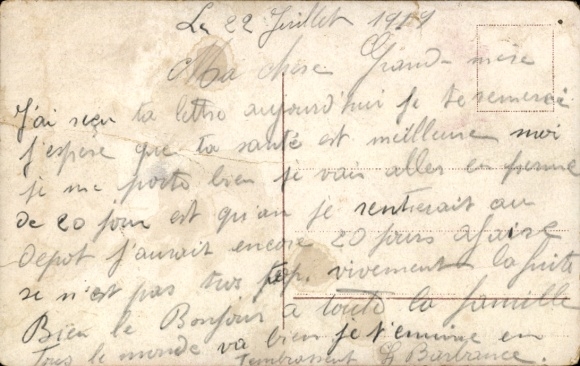 Le 22 Juillet 1919
Ma chère Grand-mère
J'ai reçu ta lettre aujourd'hui je te remercie
j'espère que ta santé est meilleure moi
je me porte bien je vais aller en perme
de 20 jour est qu'an je rentrerait au
depot j'aurait encore 20 jours a faire
se n'est pas trop vivement la fuite
Bien le Bonjour a toute la famille
Tous le monde va bien je t'en
T'embrassent